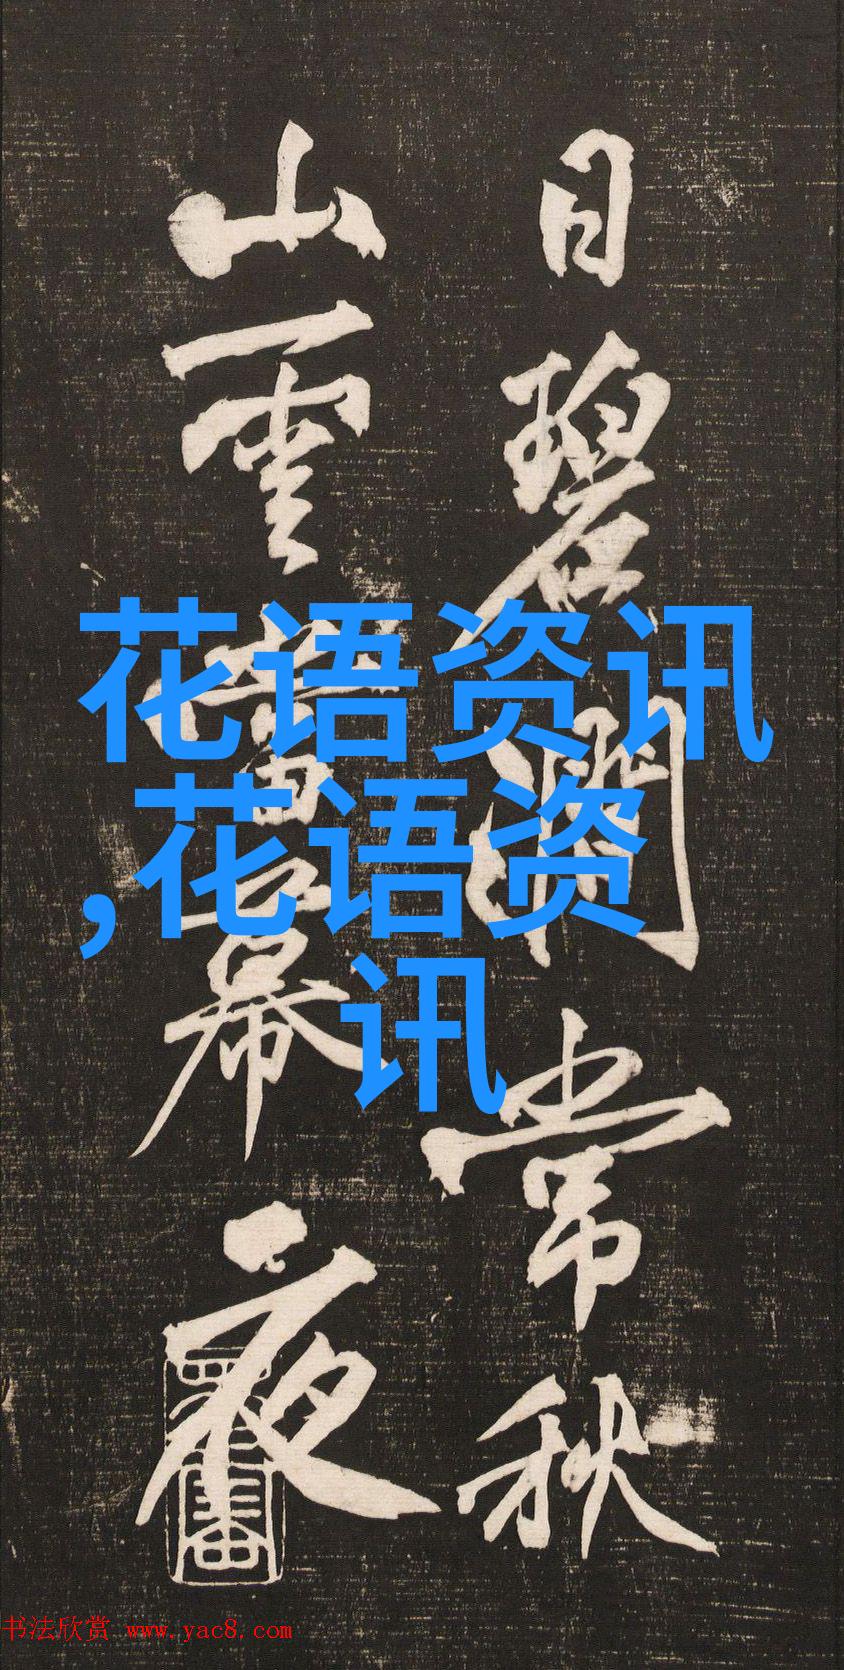 日碧澗常秋
山雲當幕夜
花语资讯
,花语资
讯
书法欣赏 www.yac8.com